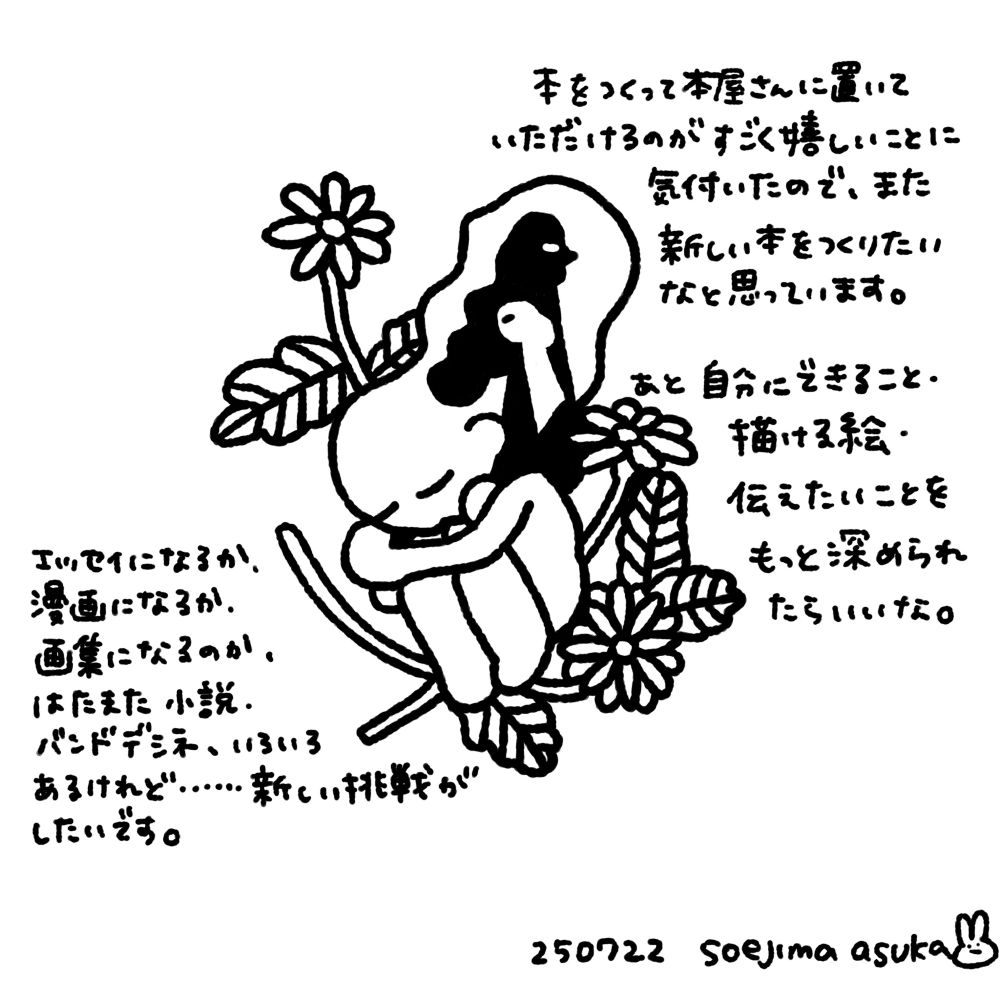 本をつくって本屋さんに置いて
いただけるのがすごく嬉しいことに
気付いたので、また
新しい本をつくりたい
なと思っています。
あと自分にできること・
描ける絵・
伝えたいことを
もっと深められ
たらいいな。
エッセイになるか、
漫画になるか、
画集になるのか、
はたまた小説、
バンドデシネ、いろいろ
あるけれど……新しい挑戦が
したいです。
250722 soejima asuka